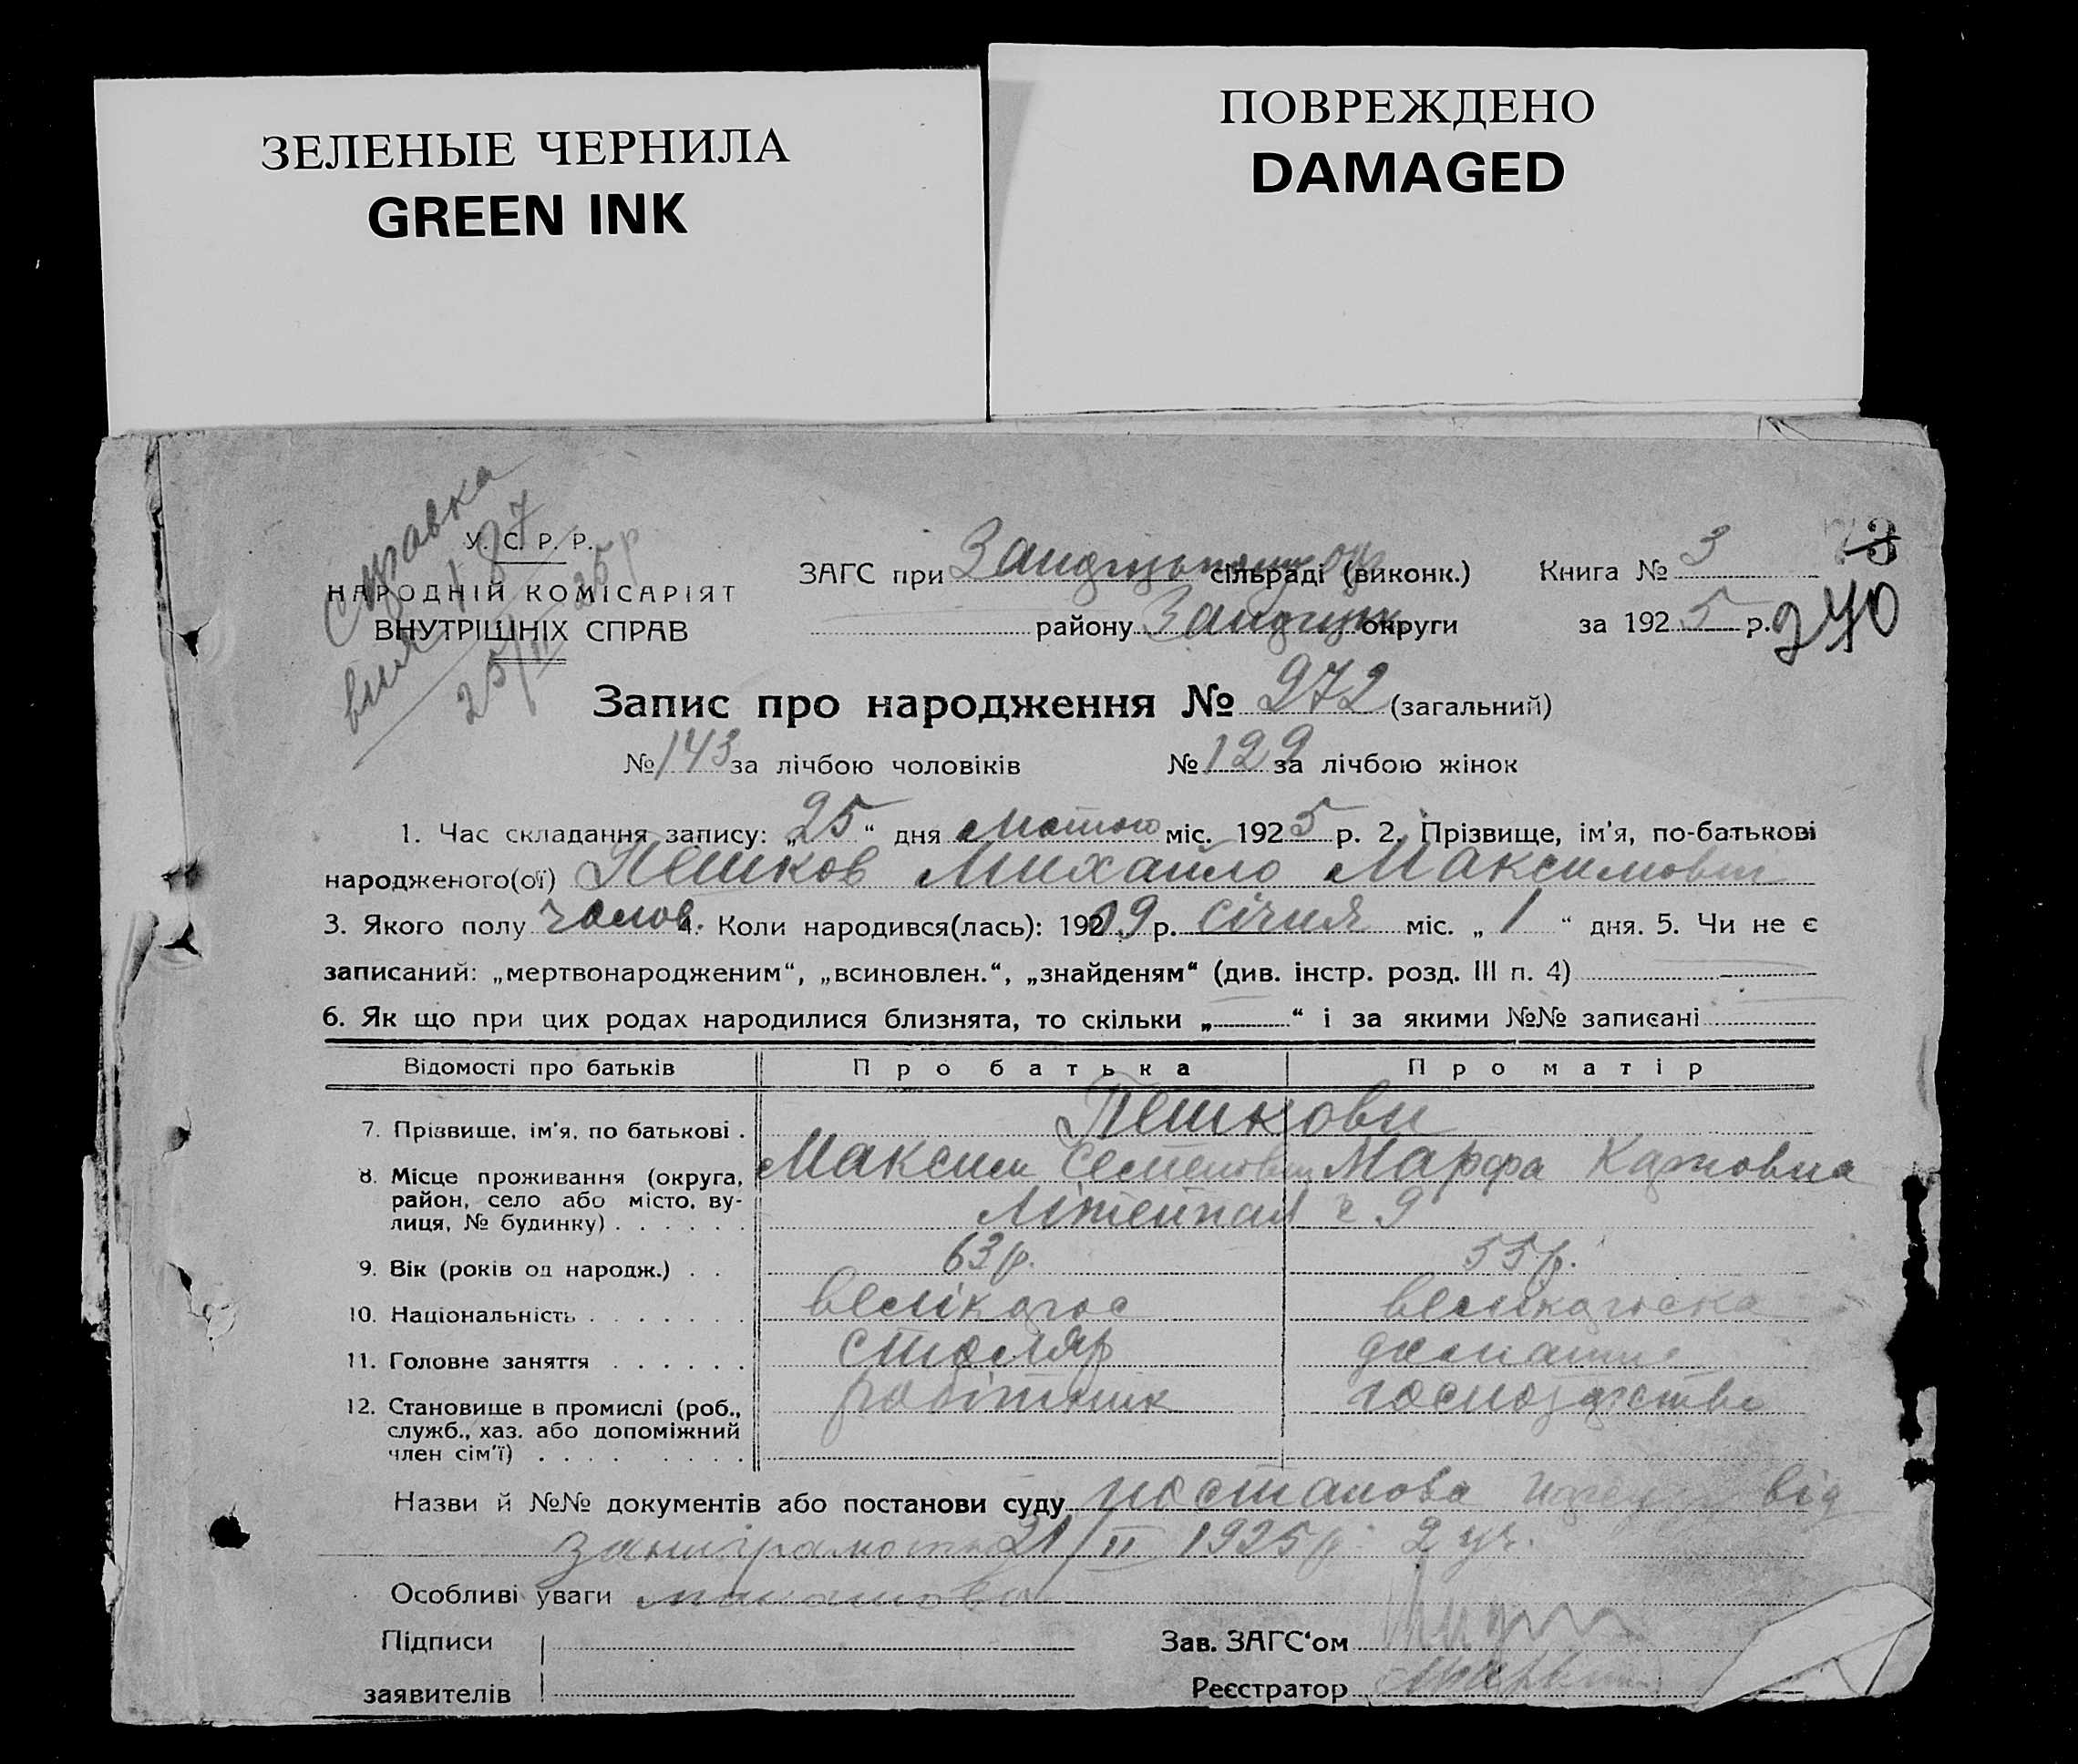 ЗЕЛЕНЫЕ ЧЕРНИЛА
GREEN INK
ПОВРЕЖДЕНО
DAMAGED
Справка
25/II 25 р
У. С. Р. Р.
НАРОДНІЙ КОМІСАРІЯТ
ВНУТРІШНІХ СПРАВ
ЗАГС при сільраді (виконк.)
району округи
Книга № 3
за 1925 р.
73
240
Запис про народження № 272 (загальний)
№ 143 за лічбою чоловіків № 129 за лічбою жінок
1. Час складання запису: „25“ дня лютого міс. 1925 р. 2. Прізвище, ім'я, по-батькові
народженого(ої) Пешков Михайло Максимович
3. Якого полу чолов. 4. Коли народився(лась): 1909 р. січня міс. „1“ дня. 5. Чи не є
записаний: „мертвонародженим“, „всиновлен.“, „знайденям“ (див. інстр. розд. III п. 4)
6. Як що при цих родах народилися близнята, то скільки „ “ і за якими №№ записані
Відомості про батьків Про батька Про матір
7. Прізвище, ім'я, по батькові . Пешкови
Максим Семенович Марфа Карповна
8. Місце проживання (округа,
район, село або місто, ву-
лиця, № будинку) . . . . . . Літейная 9
9. Вік (років од народж.) . . 63 р. 55 р.
10. Національність . . . . . . . велікорос великороска
11. Головне заняття . . . . . . столяр домашнє
12. Становище в промислі (роб., робітник господарство
служб., хаз. або допоміжний
член сім'ї) . . . . . . . .
Назви й №№ документів або постанови суду постанова від
21/II 1925 р. 2 уч.
Особливі уваги
Підписи
заявителів
Зав. ЗАГС'ом
Реєстратор